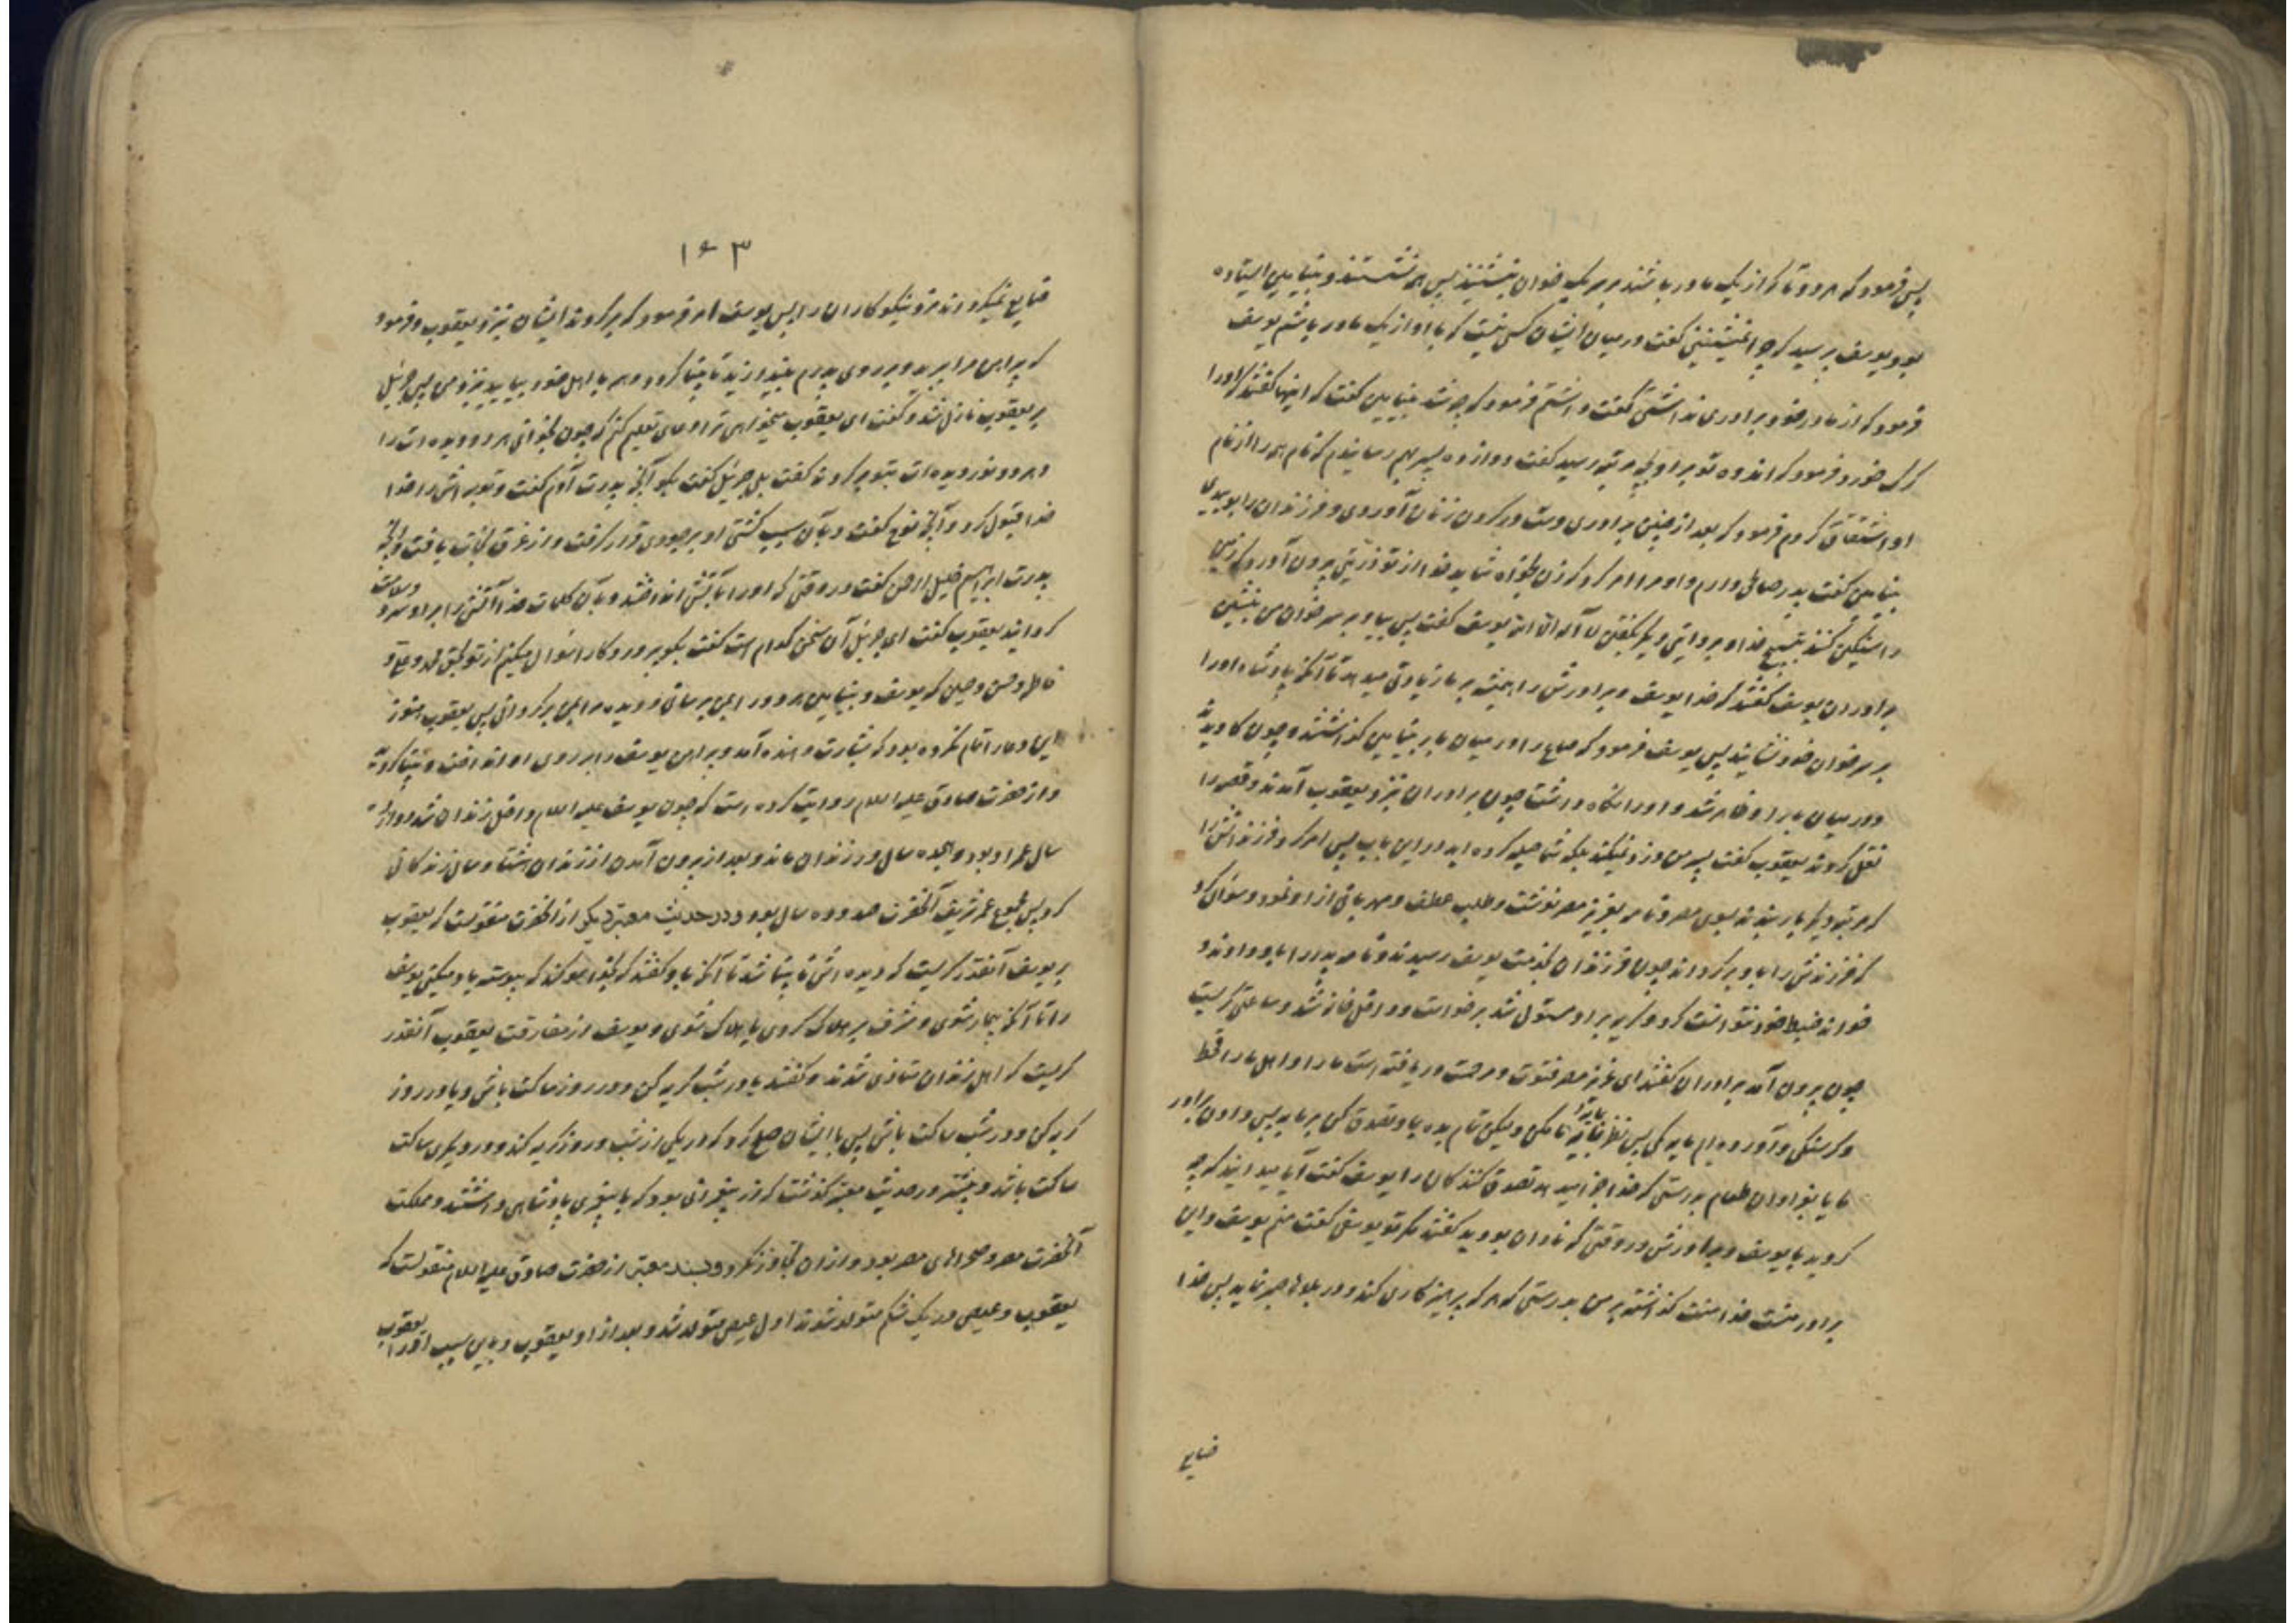 پس فرمود که هر دو تا که از یک مادر باشند بر یک خوان بنشینند پس همه نشستند و بنیامین ایستاده
بود یوسف پرسید که چرا نمیشینی گفت در میان ایشان کسی نیست که با او از یک مادر باشم یوسف
فرمود که از مادر خود برادری نداشتی گفت داشتم فرمود که چه شد بنیامین گفت که اینها گفتند که او را
گرک خورد فرمود که اندوه تو بر او بچه مرتبه رسید گفت دوازده پسر بهم رسانیدم که نام همه را از نام
او اشتقاق کردم فرمود که بعد از چنین برادری دست در گردن زنان آوردی و فرزندان را بوییدی
بنیامین گفت پدر صالحی دارم و او مرا امر کرد که زن بخواه شاید خدا از تو ذریتی بیرون آورد که زمین
را سنگین کنند بتسبیح خدا و بروایتی دیگر بگفتن لا اله الا الله یوسف گفت پس بیا و بر سر خوان من بنشین
برادران یوسف گفتند که خدا یوسف و برادرش را همیشه بر ما زیادتی میدهد تا آنکه پادشاه او را
بر سر خوان خود نشانید پس یوسف فرمود که صاع را در میان بار بنیامین گذاشتند و چون کاویدند
و در میان بار او ظاهر شد و او را نگاه داشت چون برادران نزد یعقوب آمدند و قصه را
نقل کردند یعقوب گفت پسر من دزدی نمیکند بلکه شما حیله کرده‌اید در این باب پس امر کرد فرزندانش را
که مرتبه دیگر بار بندند بسوی مصر و نامه بعزیز مصر نوشت و طلب عطف و مهربانی از او نمود و سؤال کرد
که فرزندش را باو برگرداند چون فرزندان بخدمت یوسف رسیدند و نامه پدر را باو دادند و
خواند ضبط خود نتوانست کرد و گریه بر او مستولی شد برخواست و داخل خانه شد و ساعتی گریست
چون بیرون آمد برادران گفتند ای عزیز مصر فتوت و مرحمت دریافته است ما را و اهل ما را قحط
و گرسنگی و آورده‌ایم مایه کمی پس نظر بمایه ما مکن و کیل تمام بده بما و تصدق کن بر ما به پس دادن برادر
ما یا بزیادتی طعام بدرستی که خدا جزا میدهد تصدق کنندکان را یوسف گفت آیا میدانید که چه
کردید با یوسف و برادرش در وقتی که نادان بودید گفتند مکر تو یوسفی گفت منم یوسف و این
برادر منست خدا منت گذاشته بر من بدرستی که هر که پرهیزکاری کند و در بلاها صبر نماید پس خدا
ضایع
۱۶۳
ضایع نمیکرداند مزد نیکوکاران را پس یوسف امر فرمود که برگردند ایشان نزد یعقوب و فرمود
که پیراهن مرا ببرید و بر روی پدرم بیندازید تا بینا گردد و همه با اهل خود بیایید نزد من پس جبرئیل
بر یعقوب نازل شد و گفت ای یعقوب میخواهی ترا دعای تعلیم کنم که چون بخوانی هر دو دیده‌ات را
و هر دو نور دیده‌ات بتو برگردند گفت بلی جبرئیل گفت بگو آنچه پدرت آدم گفت و توبه‌اش را خدا
خدا قبول کرد و آنچه نوح گفت و بآن سبب کشتی او بر جودی قرار گرفت و از غرق نجات یافت و آنچه
پدرت ابراهیم خلیل الرحمن گفت در وقتی که او را بآتش انداختند و بآن کلمات خدا آتش را بر او سرد و سلامت
کردانید یعقوب گفت ای جبرئیل آن سخن کدام است گفت بگو پروردکارا سؤال میکنم از تو بحق محمد و علی و
فاطمه و حسن و حسین که یوسف و بنیامین هر دو را بمن برسانی و دیده مرا بمن برگردانی پس یعقوب هنوز
این دعا را تمام نکرده بود که بشارت دهنده آمد و پیراهن یوسف را بر روی او انداخت و بینا کردید
و از حضرت صادق علیه السلام روایت کرده است که چون یوسف علیه السلام داخل زندان شد دوازده
سال عمر او بود و هجده سال در زندان ماند و بعد از بیرون آمدن از زندان هشتاد سال زندکانی
کرد پس مجموع عمر شریف آنحضرت صد و ده سال بود و در حدیث معتبر دیگر از آنحضرت منقولست که یعقوب
بر یوسف آنقدر گریست که دیده‌اش نابینا شد تا آنکه باو گفتند که بخدا سوگند که پیوسته یاد میکنی یوسف
را تا آنکه بیمار شوی و مشرف بر هلاک گردی یا هلاک شوی و یوسف از مفارقت یعقوب آنقدر
گریست که اهل زندان متاذی شدند و گفتند یا در شب گریه کن و در روز ساکت باش و یا در روز
گریه کن و در شب ساکت باش پس با ایشان صلح کرد که در یکی از شب و روز گریه کند و در دیگری ساکت
ساکت باشد و بیشتر در حدیث معتبر گذشت که از پیغمبرانی بود که با پیغمبری پادشاهی داشتند و مملکت
آنحضرت مصر و صحراهای مصر بود و از آن تجاوز نکرد و بسند معتبر از حضرت صادق علیه السلام منقولست که
یعقوب و عیص در یک شکم متولد شدند اول عیص متولد شد و بعد از او یعقوب و باین سبب او را یعقوب